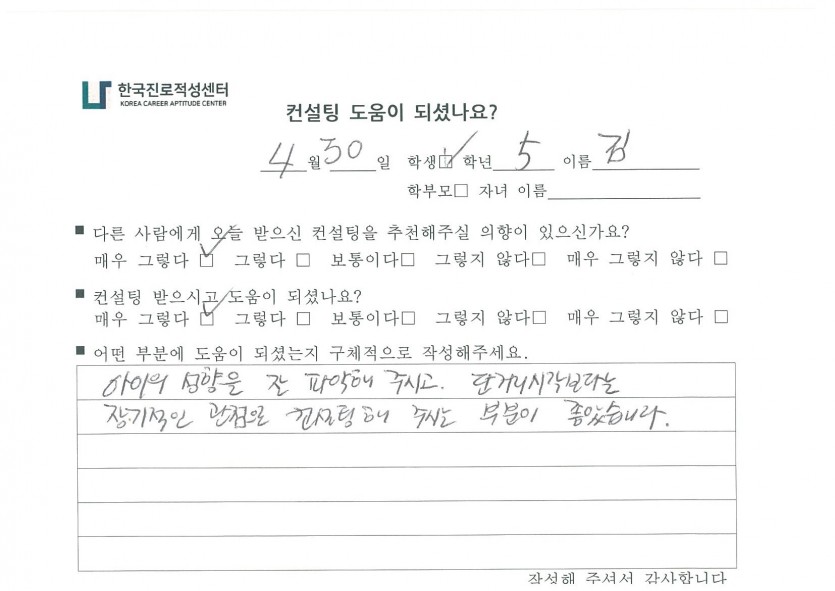 한국진로적성센터
KOREA CAREER APTITUDE CENTER
컨설팅 도움이 되셨나요?
4월 30일 학생☑ 학년 5 이름 김
학부모□ 자녀 이름
■ 다른 사람에게 오늘 받으신 컨설팅을 추천해주실 의향이 있으신가요?
매우 그렇다 ☑ 그렇다 □ 보통이다□ 그렇지 않다□ 매우 그렇지 않다 □
■ 컨설팅 받으시고 도움이 되셨나요?
매우 그렇다 ☑ 그렇다 □ 보통이다□ 그렇지 않다□ 매우 그렇지 않다 □
■ 어떤 부분에 도움이 되셨는지 구체적으로 작성해주세요.
아이의 성향을 잘 파악해 주시고. 단거리시각보다는
장기적인 관점으로 컨설팅해 주시는 부분이 좋았습니다.
작성해 주셔서 감사합니다